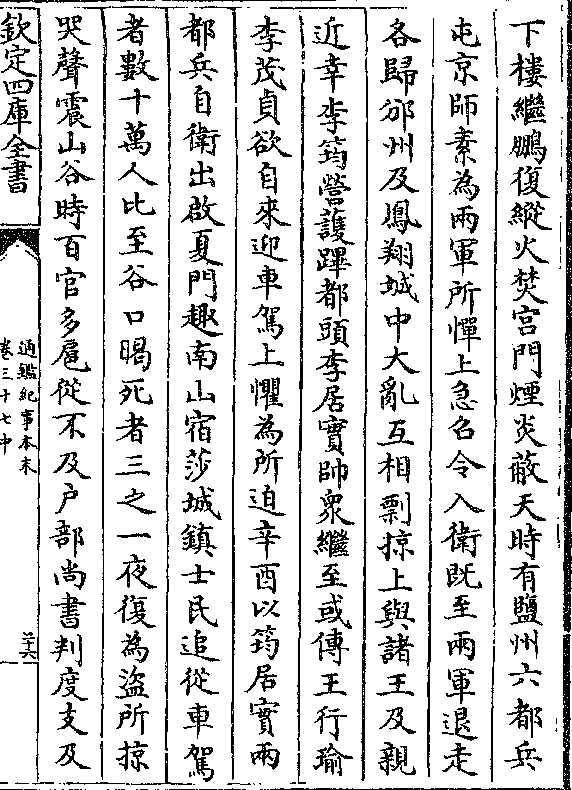 下樓繼鵬復縱火焚宫門煙炎蔽天時有鹽州六都兵
屯京師素為兩軍所憚上急名令入衛既至兩軍退走
各歸邠州及鳳翔城中大亂互相剽掠上與諸王及親
近幸李筠營護蹕都頭李居實帥衆繼至或傳王行瑜
李茂貞欲自來迎車駕上懼為所迫辛酉以筠居實兩
都兵自衛出啟夏門趣南山宿莎城鎮士民追從車駕
者數十萬人比至谷口暍死者三之一夜復為盜所掠
哭聲震山谷時百官多扈從不及户部尚書判度支及
欽定四庫全書
通鑑紀事本末
卷三十七中